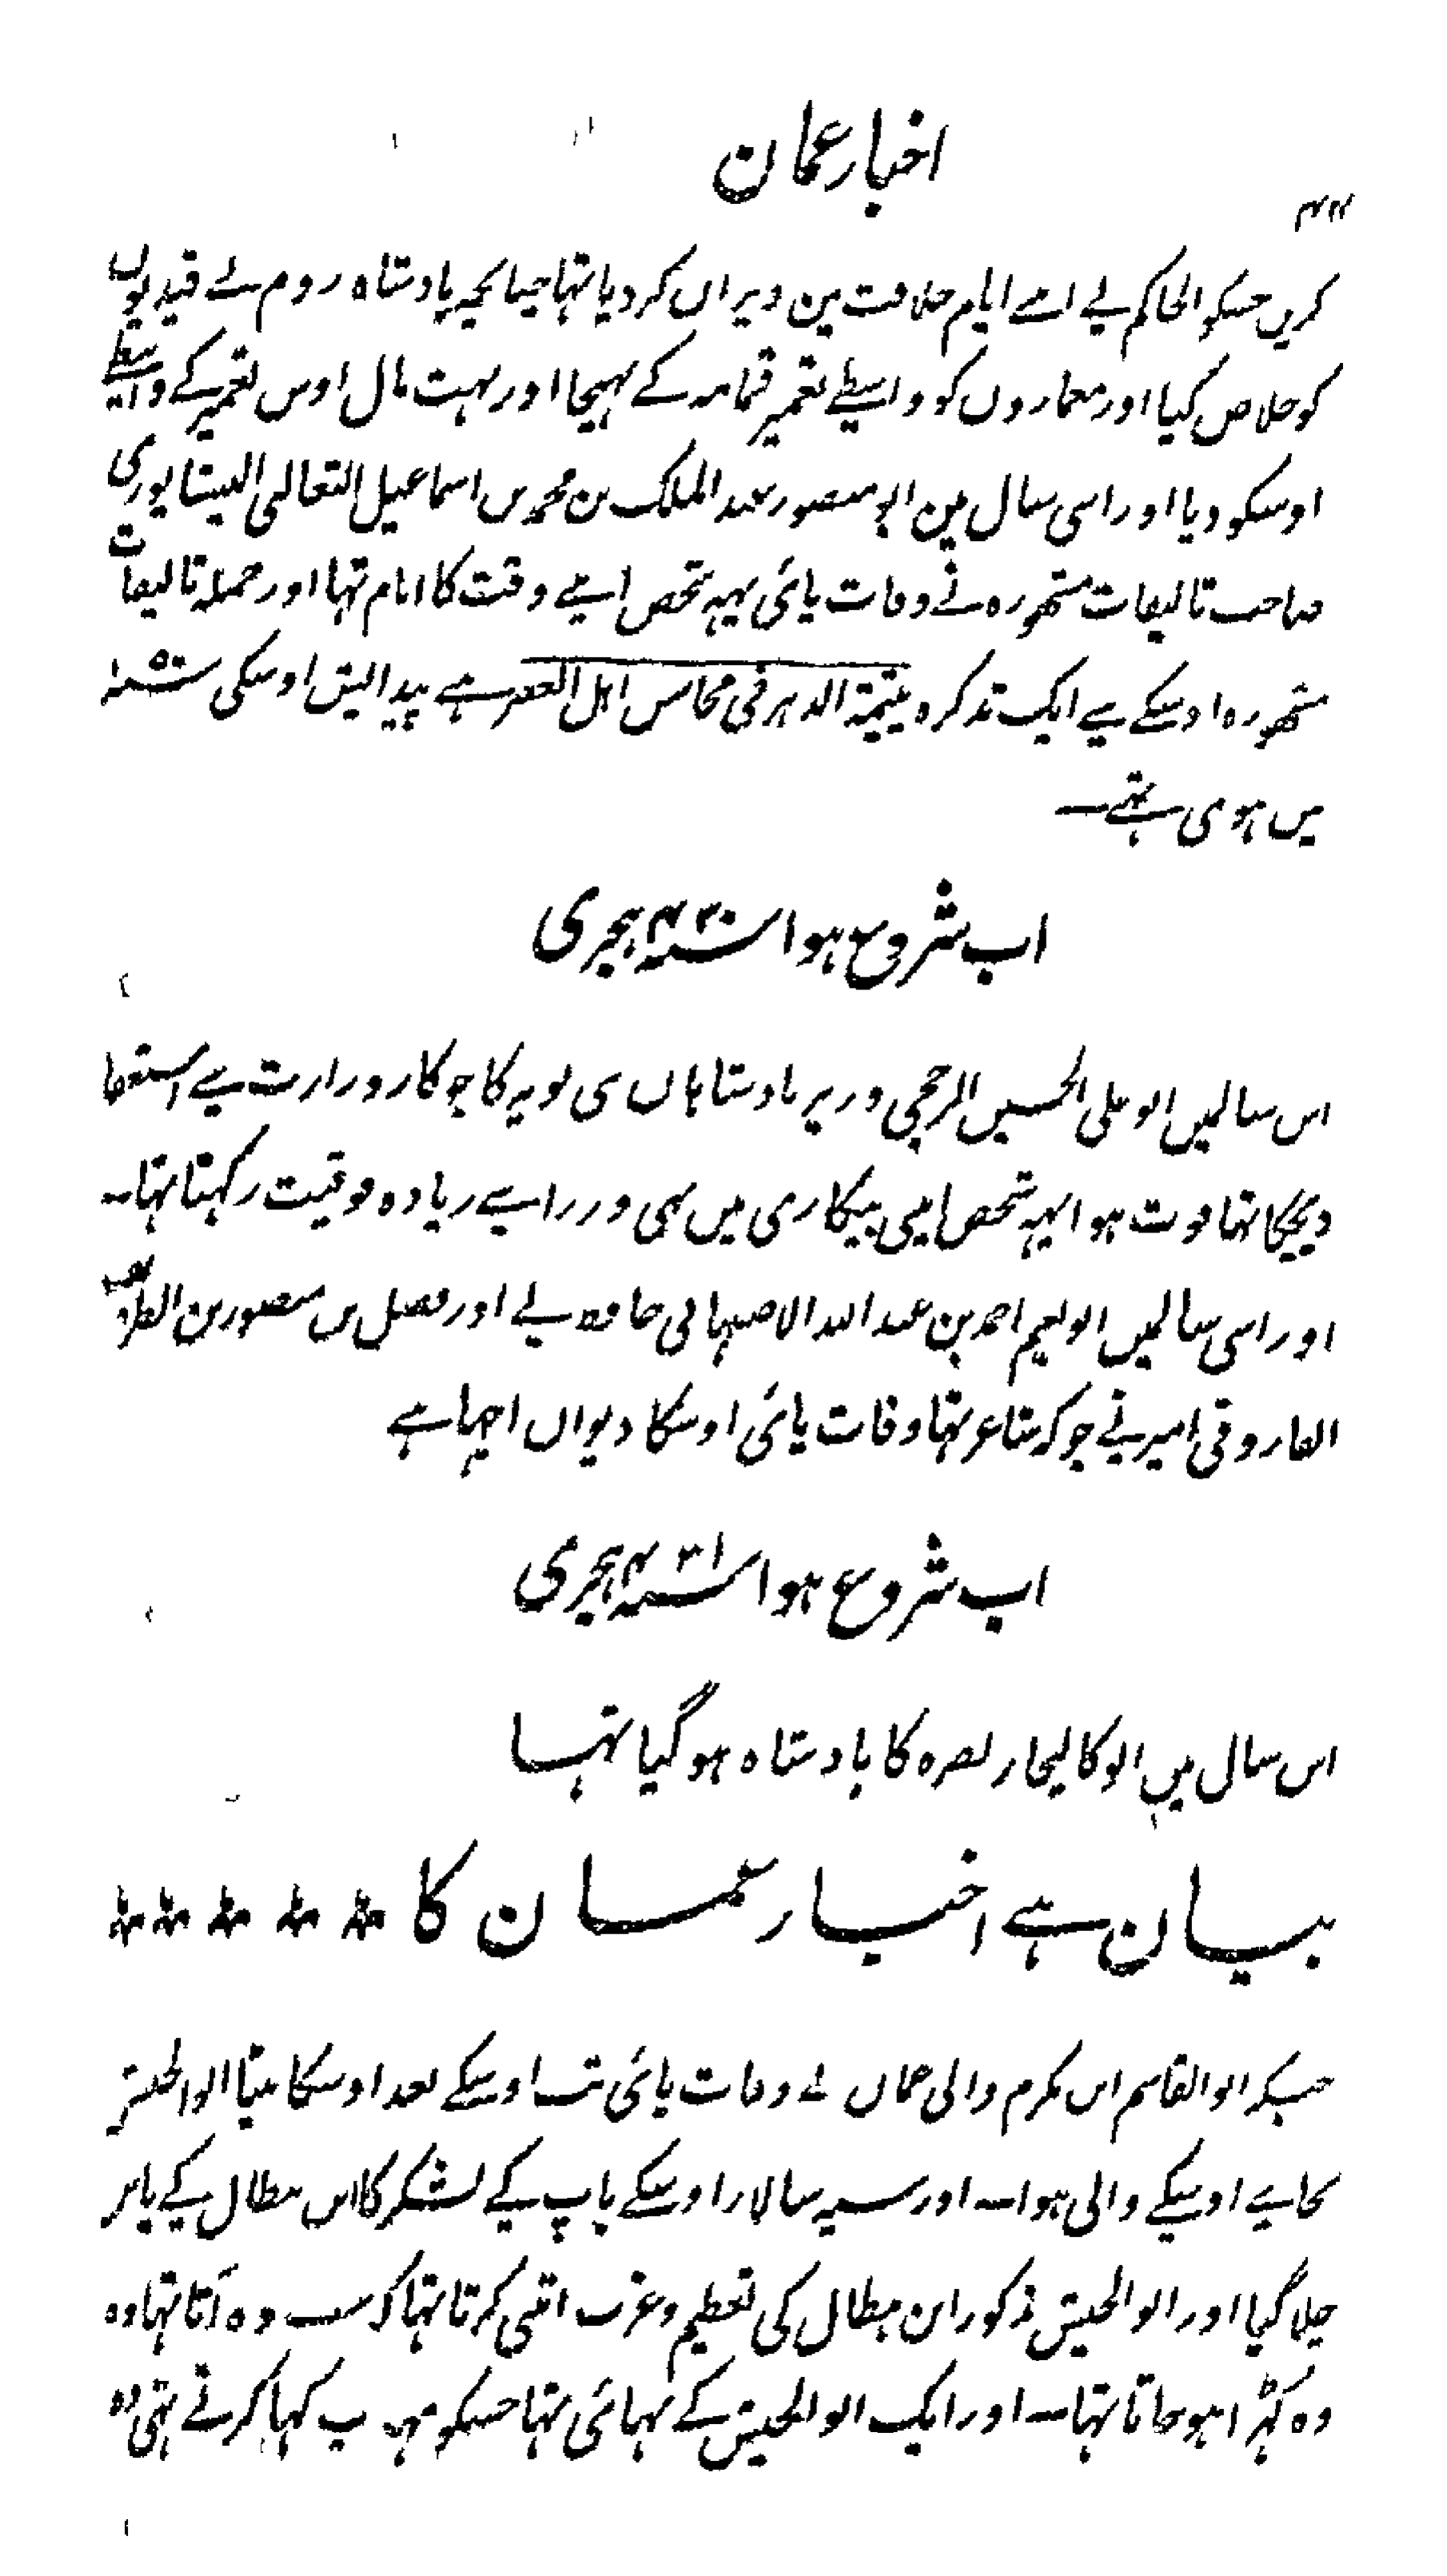 اخبار عمان
کریں جسکو الحاکم نے اپنے ایام خلافت مین ویران کر دیا تہا چنانچہ بادشاہ روم نے قیدیوں
کو خلاص کیا اور معماروں کو واسطے تعمیر قمامہ کے بہیجا اور بہت مال اوس تعمیر کے واسطے
اوسکو دیا اور اسی سال مین ابو منصور عبد الملک بن محمد بن اسماعیل الثعالبی النیشاپوری
صاحب تالیفات مشہورہ نے وفات پائی یہہ شخص اپنے وقت کا امام تہا اور جملہ تالیفات
مشہورہ اوسکے سے ایک تذکرہ یتیمۃ الدہر فی محاسن اہل العصر ہے پیدایش اوسکی
میں ہوی تہے ــ
اب شروع ہوا سنہ ۴۳۰ ہجری
اس سالمیں ابو علی الحسین الرخجی وزیر بادشاہاں بنی بویہ کا جو کار وزارت سے استعفا
دیچکا تہا فوت ہوا یہہ شخص اپنی بیکاری میں بہی وزرا سے زیادہ فوقیت رکہتا تہا ــ
اور اسی سالمیں ابو نعیم احمد بن عبد اللہ الاصبہانی حافظ نے اور فضل بن منصور بن الظریف
الفاروقی امیر نے جو کہ شاعر تہا وفات پائی اوسکا دیوان اچہا ہے
اب شروع ہوا سنہ ۴۳۱ ہجری
اس سال میں ابو کالیجار بصرہ کا بادشاہ ہو گیا تہا
بیان ہے اخبار عمان کا
جبکہ ابو القاسم ابن مکرم والی عمان نے وفات پائی تب اوسکے بعد اوسکا بیٹا ابو الجیش
بجاے اوسکے والی ہوا ــ اور سپہ سالار اوسکے باپ کے لشکر کا ابن ہطال کے باہر
چلا گیا اور ابو الجیش مذکور ابن ہطال کی تعظیم و عزت اتنی کرتا تہا کہ جب وہ آتا تہا وہ
وہ کہڑا ہو جاتا تہا ــ اور ایک ابو الجیش کے بہائی تہا جسکو مہذب کہا کرتے تہی وہ